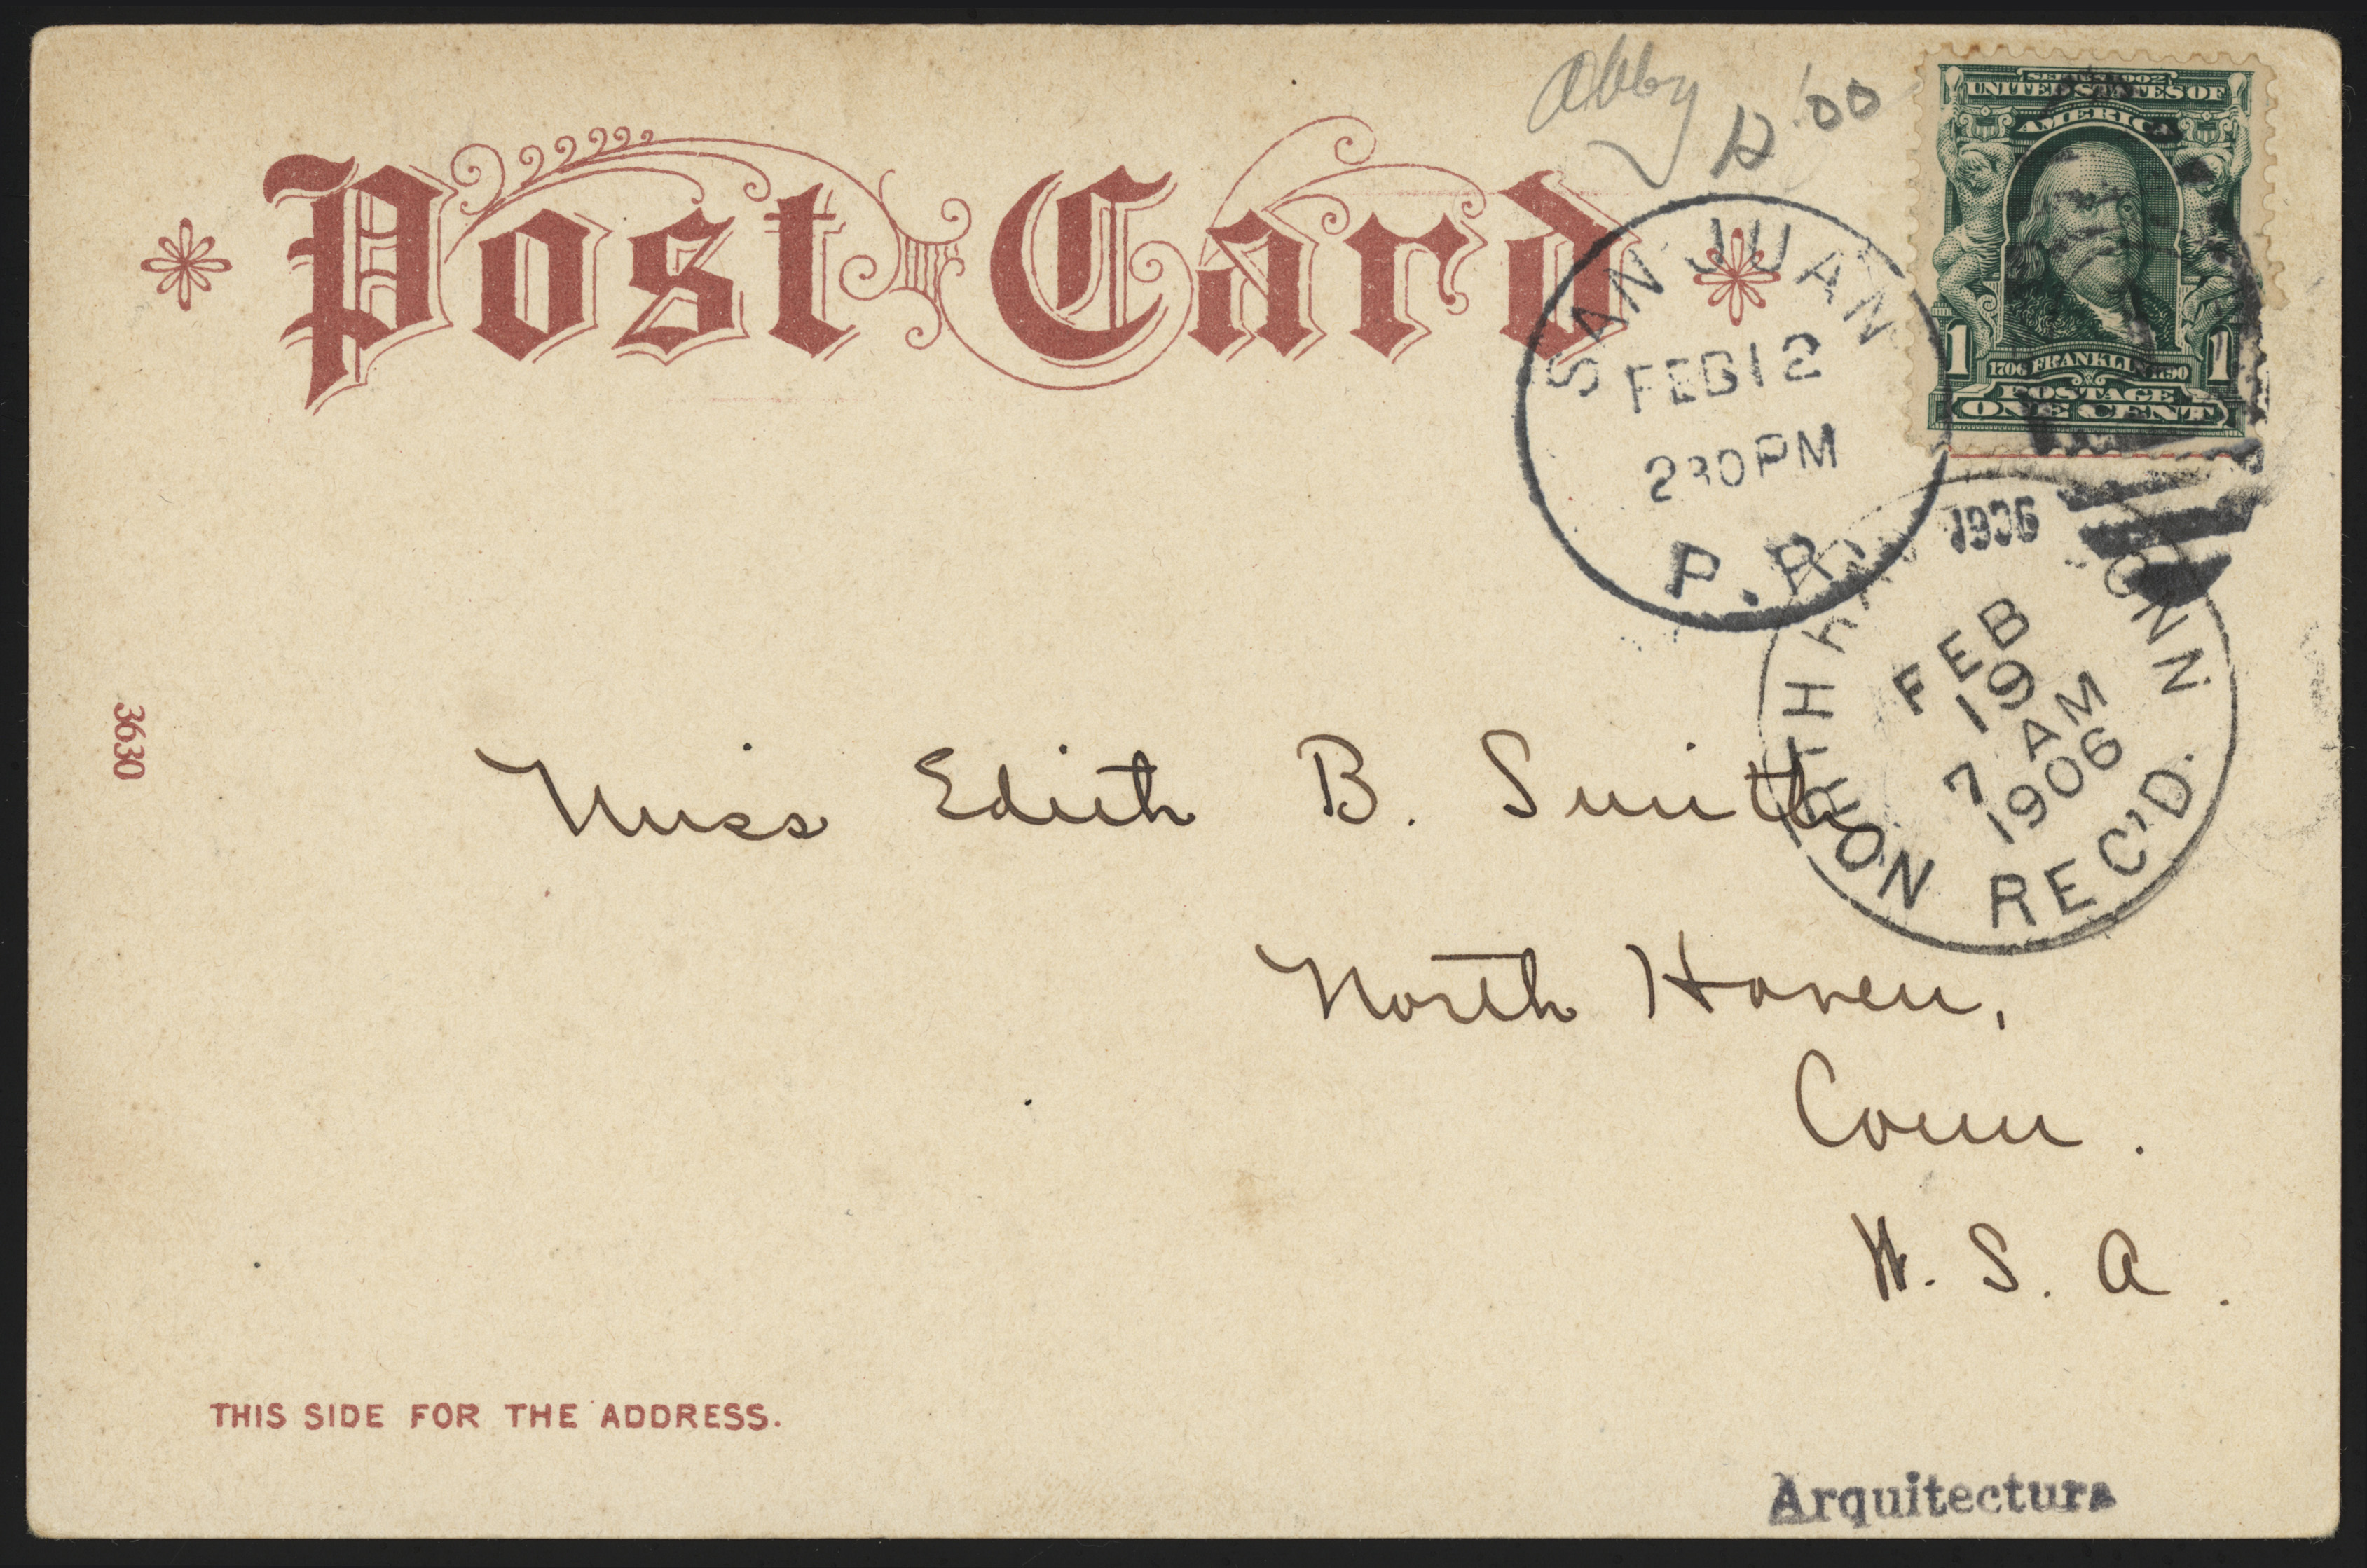 Abby
12'00
Post Card
SERIES 1902
UNITED STATES OF
AMERICA
1706 FRANKLIN 1790
1 1
POSTAGE
ONE CENT
SAN JUAN
FEB 12
2 30 PM
P.R.
1906
NORTH HAVEN CONN.
FEB
19
7 AM
1906
REC'D.
3630
Miss Edith B. Smith
North Haven,
Conn.
U. S. A.
THIS SIDE FOR THE ADDRESS.
Arquitectura